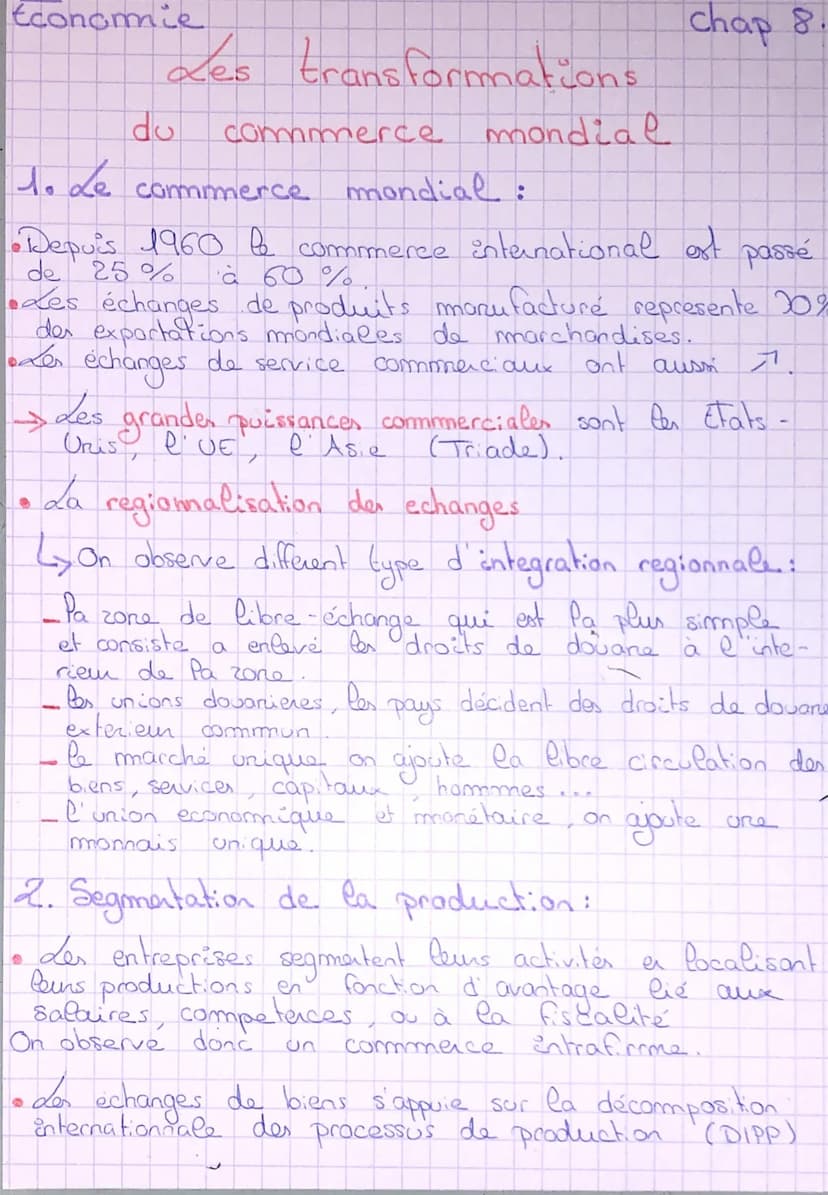 Economie chap 8.
Les transformations
du commmerce mondial
1. Le commmerce mondial :
• Depuis 1960 le commmerce international est passé
de 25 % à 60 %.
• Les échanges de produits manufacturé represente 70%
des exportations mondiales de marchandises.
• Les échanges de service commmerciaux ont aussi ↗.
→ Les grandes puissances commmerciales sont les Etats-
Unis, l'UE, l'Asie (Triade).
• La regionnalisation des echanges
↳ On observe different type d'integration regionnale :
- la zone de libre-échange qui est la plus simple
et consiste a enlevé les droits de douane à l'inte-
rieur de la zone.
- les unions douanieres, les pays décident des droits de douane
exterieur commun.
- le marché unique on ajoute la libre circulation des
biens, services, capitaux, hommmes ...
- l'union economique et monétaire, on ajoute une
monnais unique.
2. Segmentation de la production :
• Les entreprises segmentent leurs activités en localisant
leurs productions en fonction d'avantage lié aux
salaires, competences, ou à la fiscalité
On observe donc un commmerce intrafirme.
• Les echanges de biens s'appuie sur la décomposition
internationnale des processus de production (DIPP)